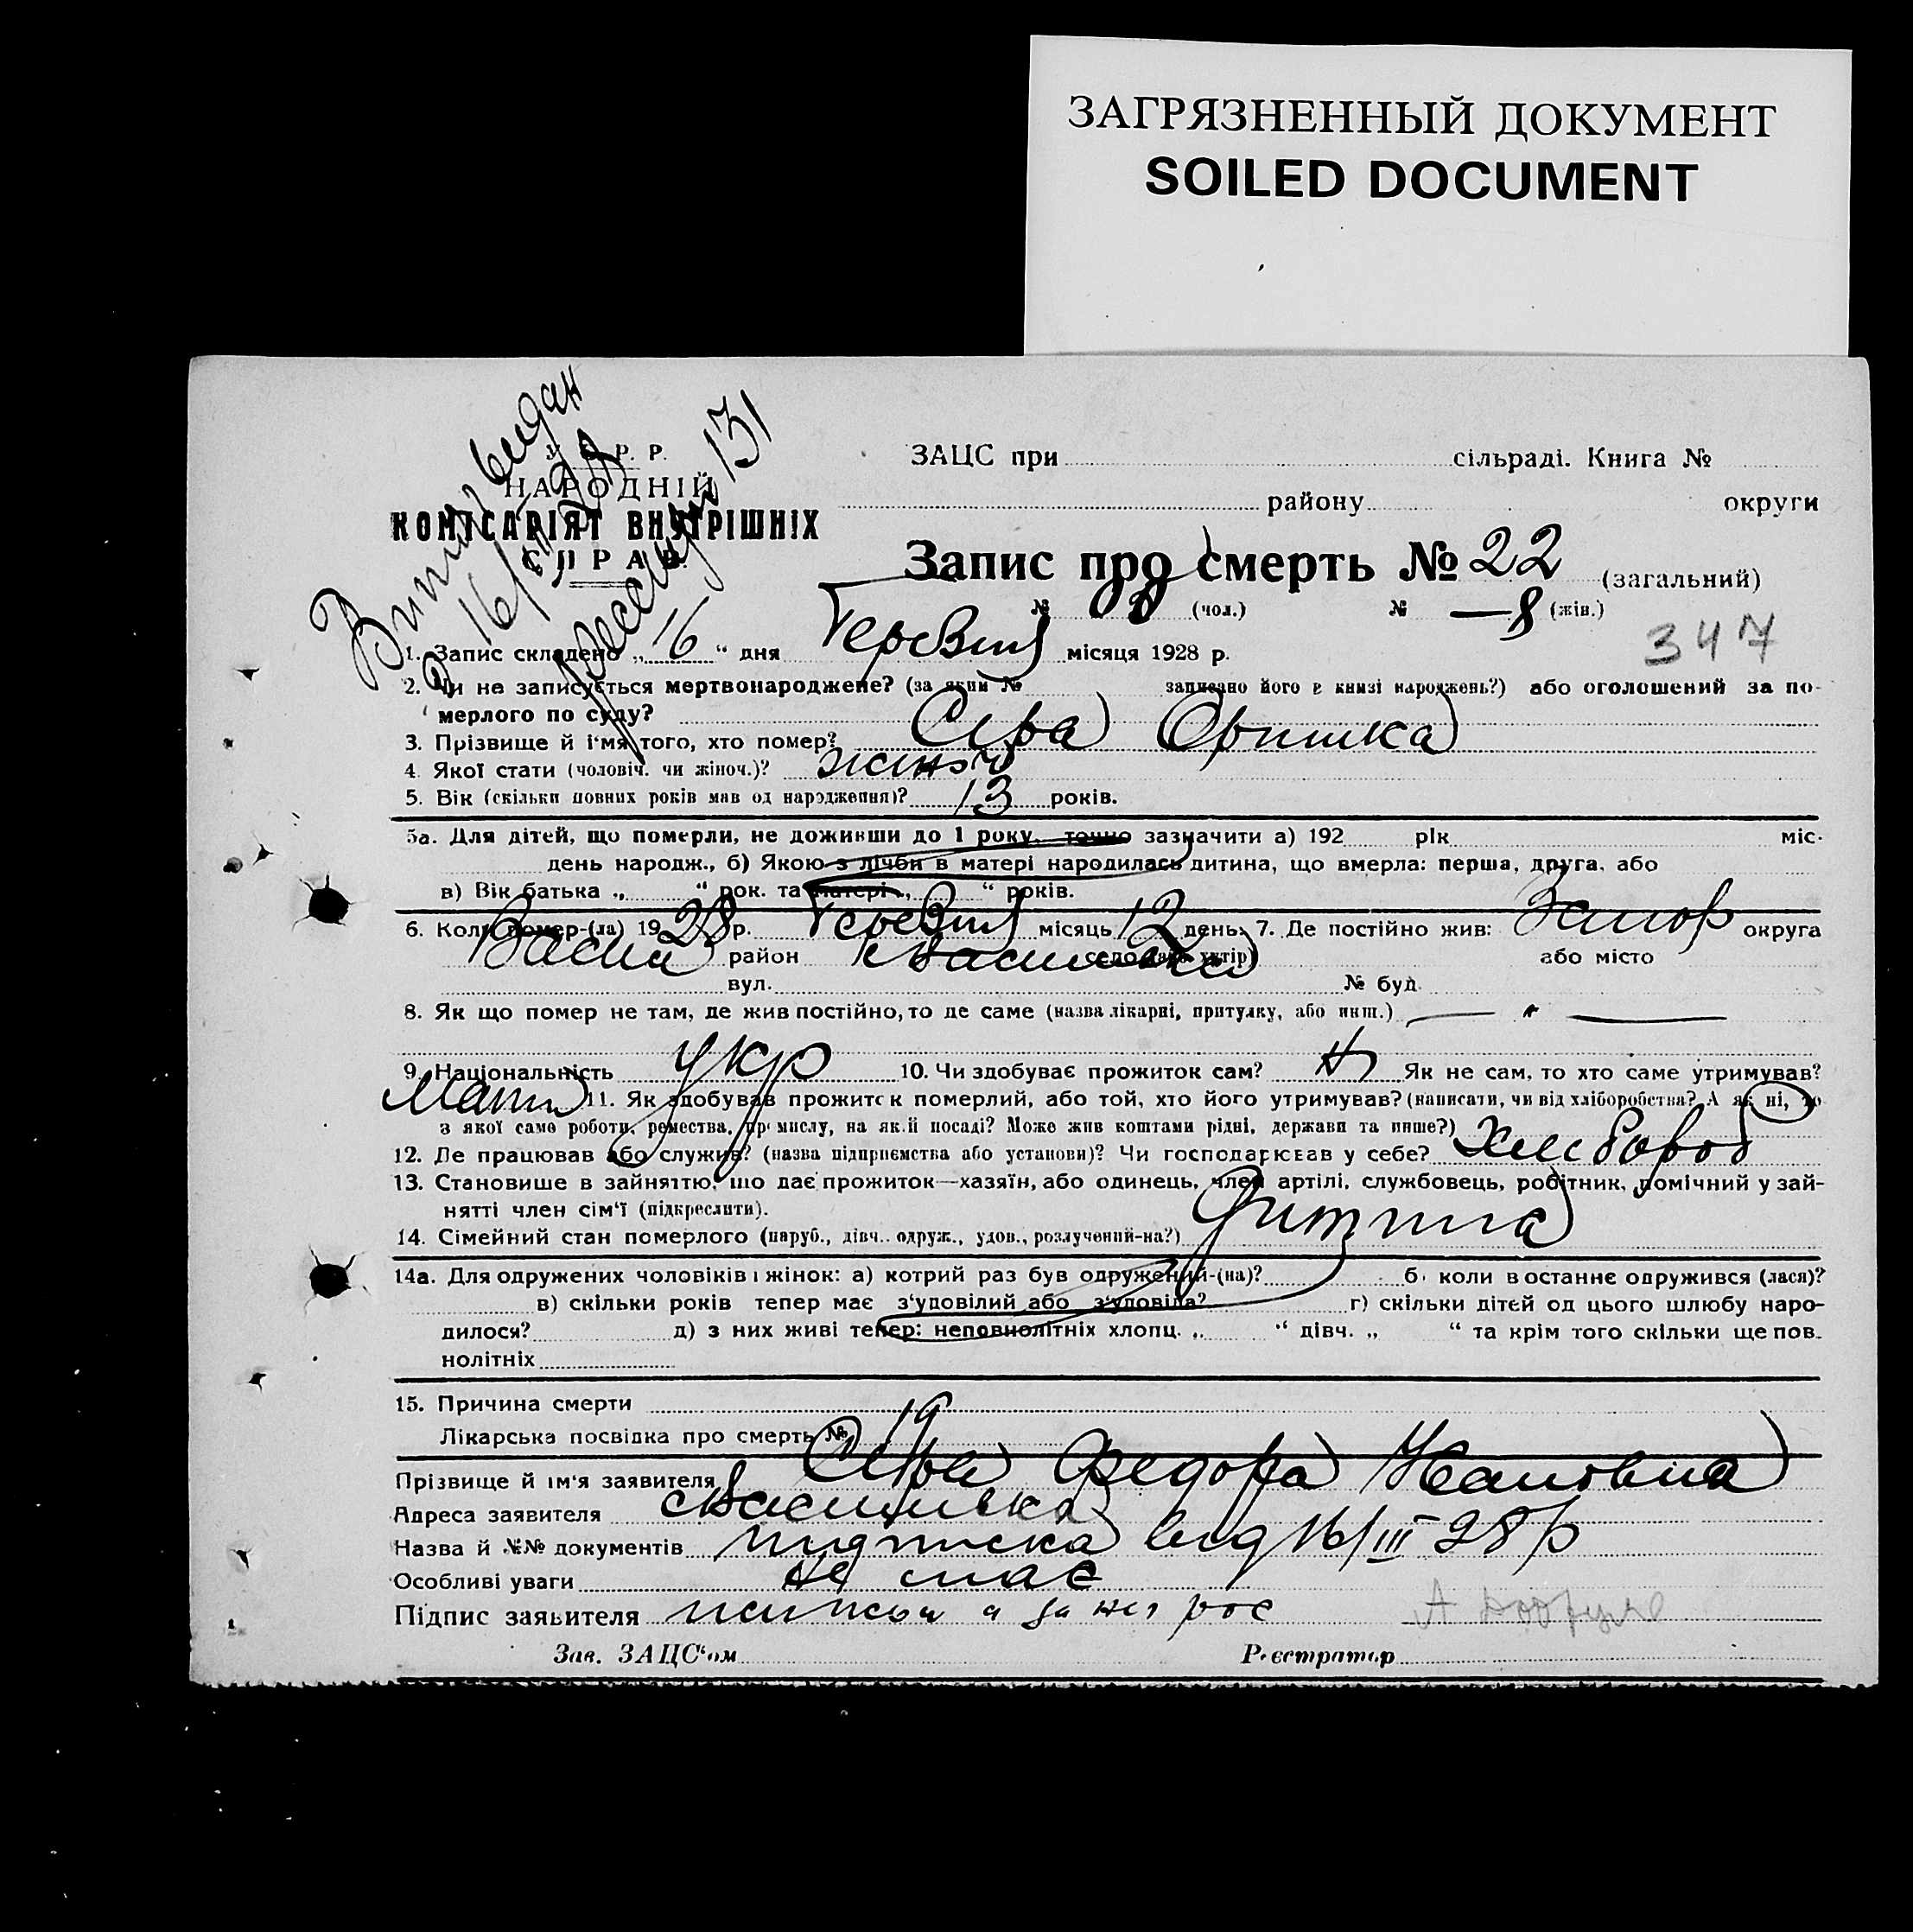 ЗАГРЯЗНЕННЫЙ ДОКУМЕНТ
SOILED DOCUMENT
видан
16/III 28
131
У. С. Р. Р.
НАРОДНІЙ
КОМІСАРІЯТ ВНУТРІШНІХ
СПРАВ.
ЗАЦС при сільраді. Книга №
району округи
Запис про смерть № 22 (загальний)
№ (чол.) № —8 (жін.)
347
1. Запис складено „16“ дня місяця 1928 р.
2. Чи не записується мертвонароджене? (за яким № записано його в книзі народжень?) або оголошений за по-
мерлого по суду?
3. Прізвище й ім'я того, хто помер? Сіра Оришка
4. Якої стати (чоловіч. чи жіноч.)? жіноч
5. Вік (скільки повних років мав од народження)? 13 років.
5а. Для дітей, що померли, не доживши до 1 року, точно зазначити а) 192 рік міс.
день народж., б) Якою з лічби в матері народилась дитина, що вмерла: перша, друга, або
в) Вік батька „ “ рок. та матері „ “ років.
6. Коли помер-(ла) 1928 р. місяць 12 день. 7. Де постійно жив: Запор округа
Васил район село (або хутір) або місто
вул. № буд.
8. Як що помер не там, де жив постійно, то де саме (назва лікарні, притулку, або инш.) — " —
9. Національність укр 10. Чи здобуває прожиток сам? Ні Як не сам, то хто саме утримував?
Мати 11. Як здобував прожиток померлий, або той, хто його утримував? (написати, чи від хліборобства? А як ні, то
з якої саме роботи, ремества, промислу, на якій посаді? Може жив коштами рідні, держави та инше?)
12. Де працював або служив? (назва підприємства або установи)? Чи господарював у себе? Хлібороб
13. Становище в зайняттю, що дає прожиток—хазяїн, або одинець, член артілі, службовець, робітник, помічний у зай-
нятті член сім'ї (підкреслити).
14. Сімейний стан померлого (паруб., дівч., одруж., удов., розлучений-на?) дитина
14а. Для одружених чоловіків і жінок: а) котрий раз був одружений-(на)? б) коли востаннє одружився (лася)?
в) скільки років тепер має з'удовілий або з'удовіла? г) скільки дітей од цього шлюбу наро-
дилося? д) з них живі тепер: неповнолітніх хлопц. „ “ дівч. „ “ та крім того скільки ще пов-
нолітніх
15. Причина смерти
Лікарська посвідка про смерть № 19
Прізвище й ім'я заявителя Сіра Федора Йванівна
Адреса заявителя с Василівка
Назва й №№ документів підписка від 16/III 28 р
Особливі уваги не має
Підпис заявителя
Зав. ЗАЦС'ом Реєстратор